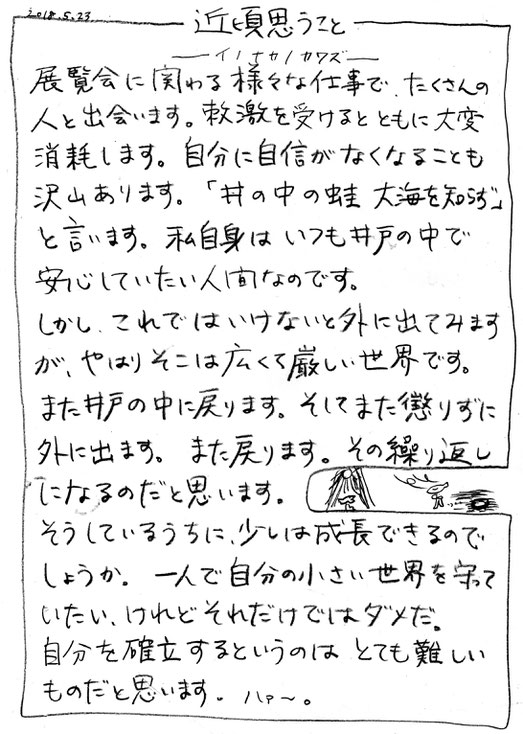 2018.5.23
近頃思うこと
イノナカノカワズ
展覧会に関わる様々な仕事で、たくさんの
人と出会います。刺激を受けるとともに大変
消耗します。自分に自信がなくなることも
沢山あります。「井の中の蛙 大海を知らず」
と言います。私自身はいつも井戸の中で
安心していたい人間なのです。
しかし、これではいけないと外に出てみます
が、やはりそこは広くて厳しい世界です。
また井戸の中に戻ります。そしてまた懲りずに
外に出ます。また戻ります。その繰り返し
になるのだと思います。
そうしているうちに、少しは成長できるので
しょうか。一人で自分の小さい世界を守って
いたい、けれどそれだけではダメだ。
自分を確立するというのはとても難しい
ものだと思います。ハァ〜。